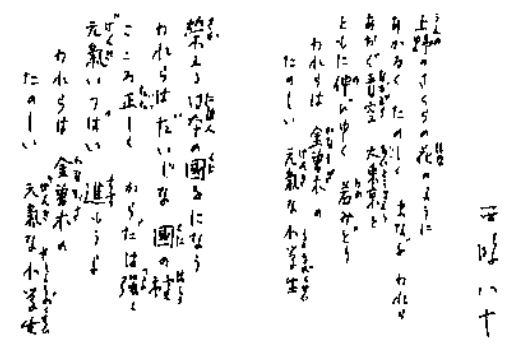 西條八十
上野のさくらの花のように
あかるく たのしく まなぶ われら
あおぐ青空 大東京と
ともに伸びゆく 若みどり
われらは 金曽木の
たのしい 元氣な小学生
榮える日本の國をになう
われらはだいじな 國の柱
こころ正しく からだは強く
元氣いっぱい 進もうよ
われらは 金曽木の
たのしい 元氣な小学生